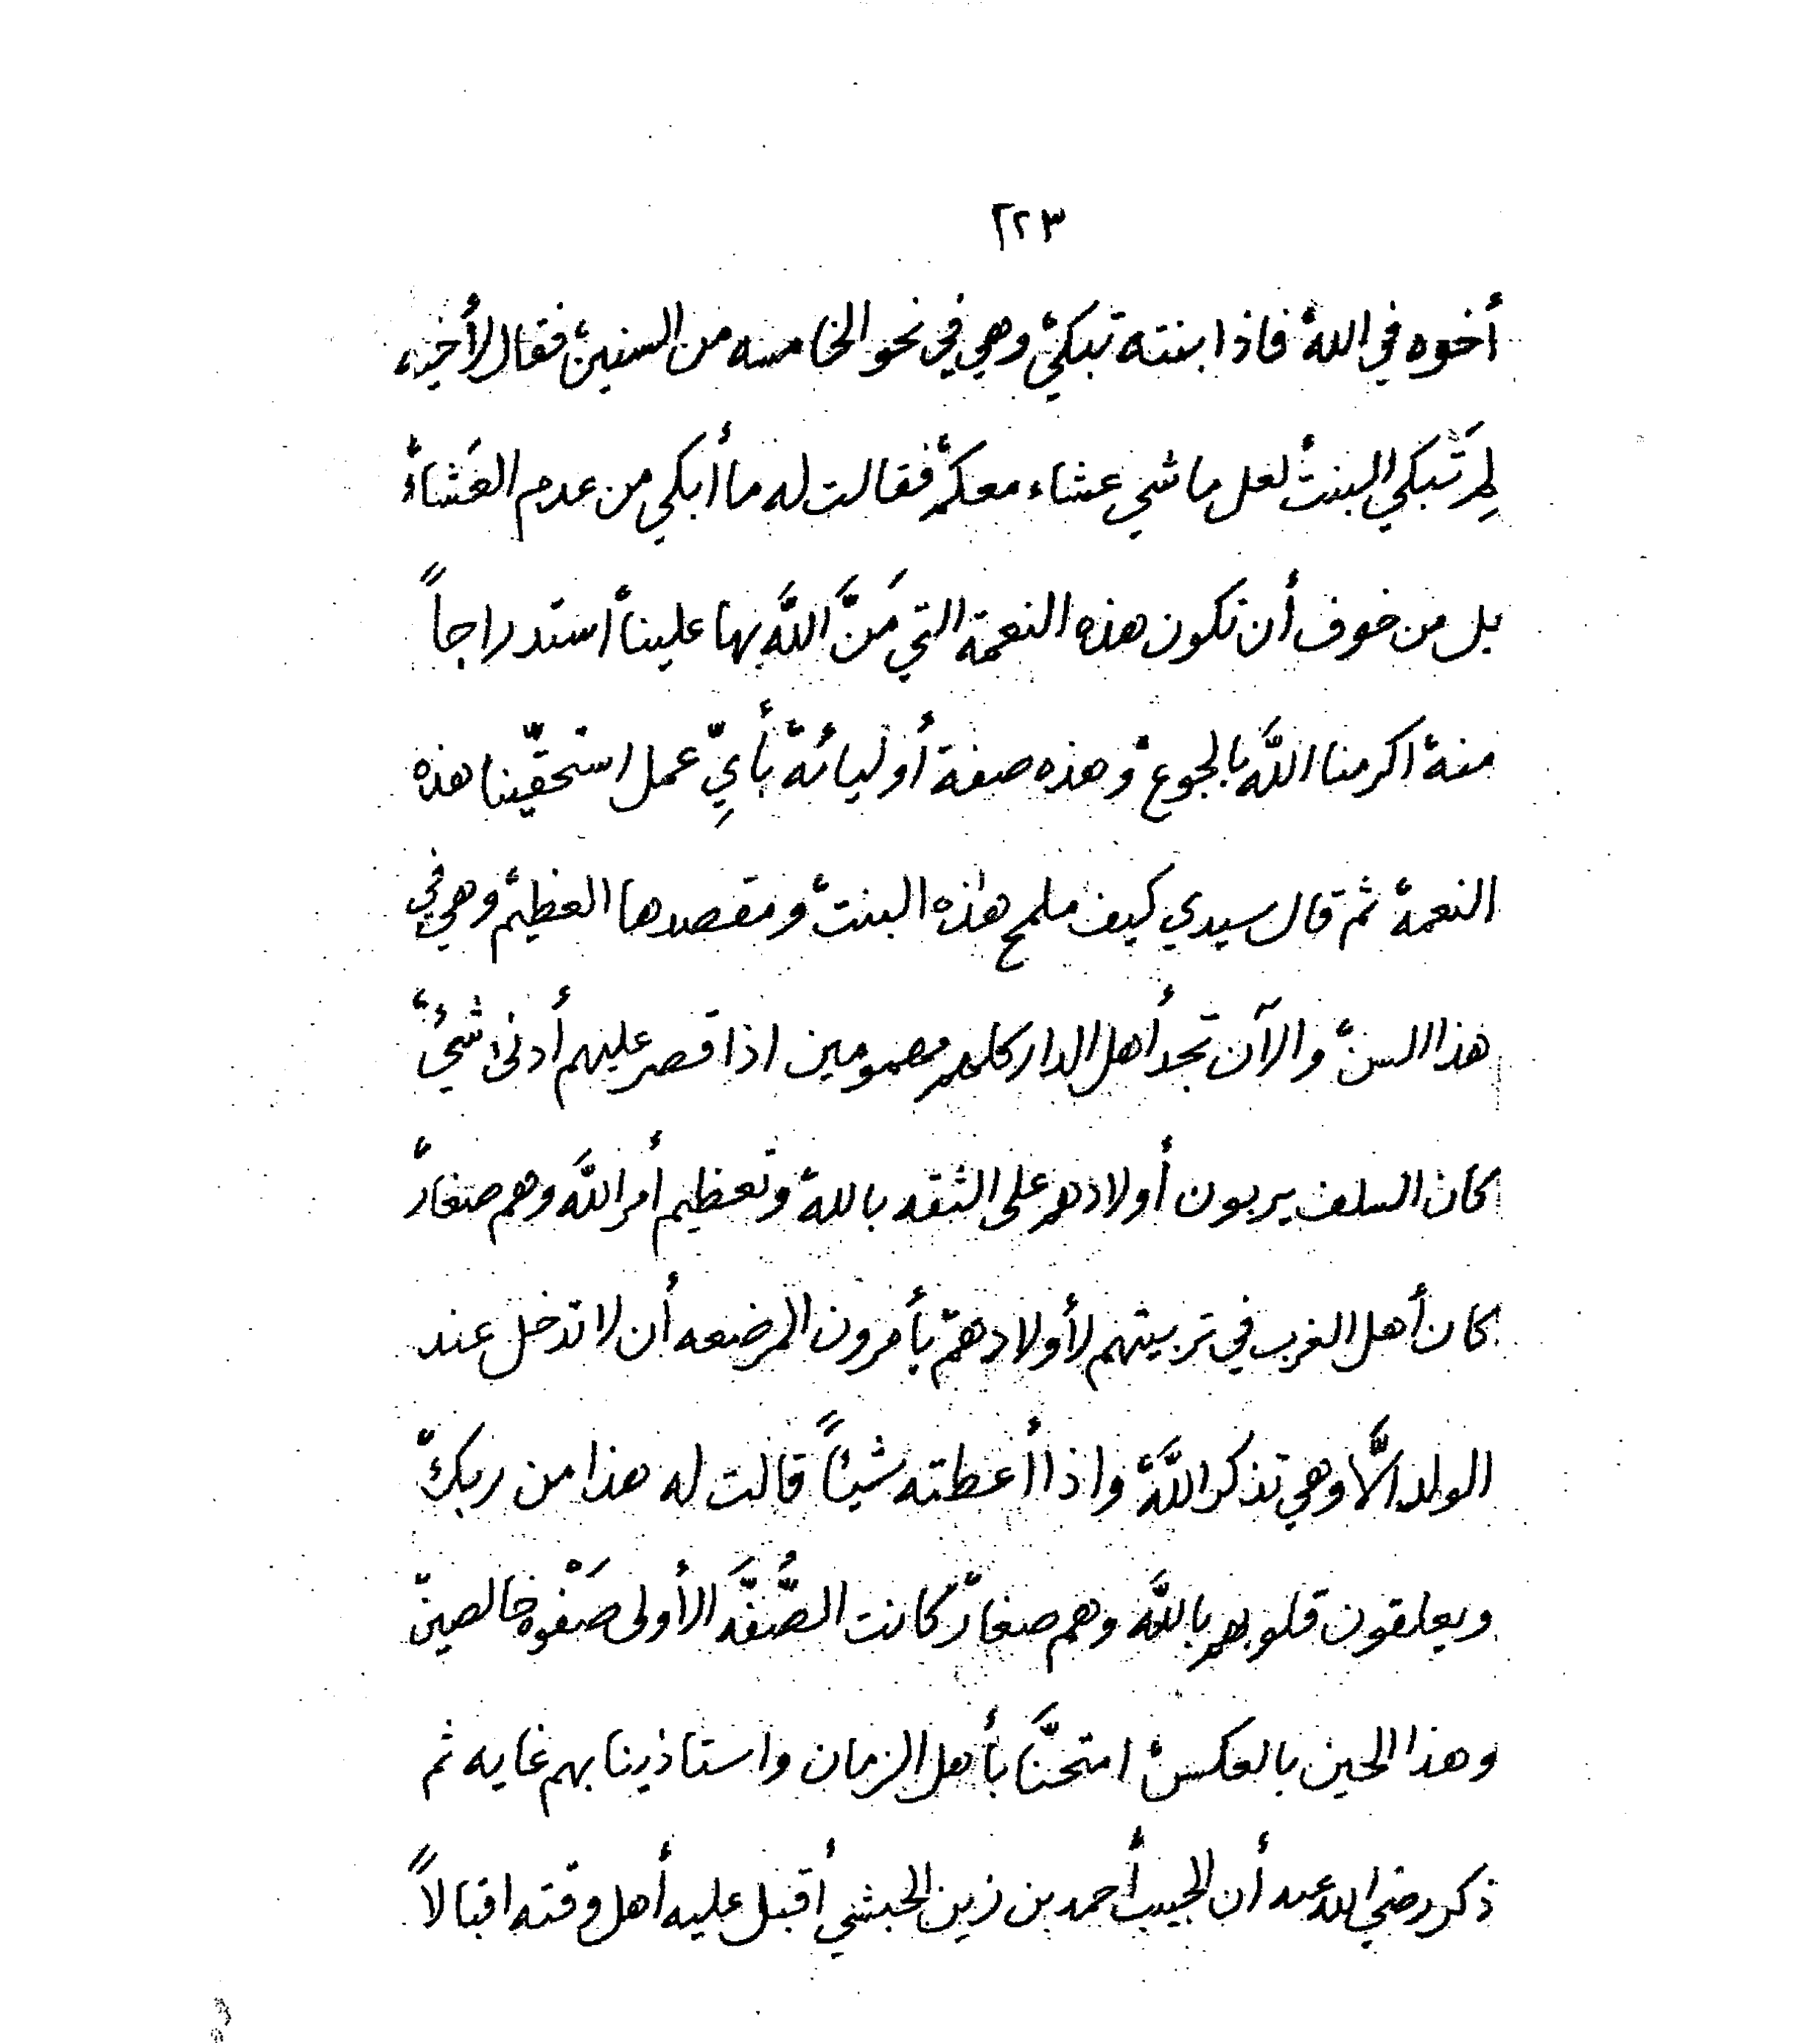 ٢٢٣
أخوه في الله، فاذا بنته تبكي، وهي في نحو الخامسه من السنين، فقال لأخيه،
لِمَ تَبكي البنت، لعل ماشي عشاء معكم، فقالت له ما أبكي من عدم العَشاء،
بل من خوف أن تكون هذه النعمة التي مَنَّ اللَّه بها علينا، استدراجاً
منه، اكرمنا اللَّه بالجوع، وهذه صفة أوليائه، بأيِّ عمل استحقّينا هذه
النعمة، ثم قال سيدي كيف ملمح هذه البنت، ومقصدها العظيم، وهي في
هذا السن، والآن تجد أهل الدار كلهم مهمومين اذا قصر عليهم أدنى شيء،
كان السلف يربون أولادهم على الثقه بالله، وتعظيم أمر اللَّه وهم صغار،
كان أهل الغرب في تربيتهم لأولادهم، يأمرون المرضعه أن لا تدخل عند
الولد الَّا وهي تذكر اللَّه، واذا أعطته شيئاً قالت له هذا من ربك،
ويعلقون قلوبهم باللَّه وهم صغار، كانت الصُّفَّه الأولى صَفْوه خالصين،
وهذا الحين بالعكس، امتحنَّا بأهل الزمان واستاذينا بهم غايه ثم
ذكر رضي الله عنه أن الحبيب أحمد بن زين الحبشي أقبل عليه أهل وقته اقبالاً